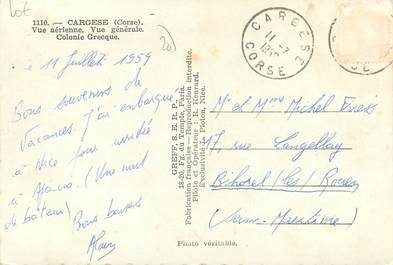 lot
1110. — CARGESE (Corse).
Vue aérienne. Vue générale.
Colonie Grecque.
20
CARGESE
11-7
CORSE
le 11 Juillet 1959
Bons souvenirs de
vacances. J'ai embarqué
à Nice pour arrivée
à Ajaccio. (Une nuit
de bateau)
Bons baisers
Alain
GREFF, S. E. R. P.,
18-20, Fg. du Temple, Paris.
Fabrication française - Reproduction interdite.
Pilote et Opérateur : R. Henrard.
Exclusivité La Pioton, Nice.
Mr et Mme Michel
17, rue
Bihorel les Rouen
(Seine-Maritime)
Photo véritable.